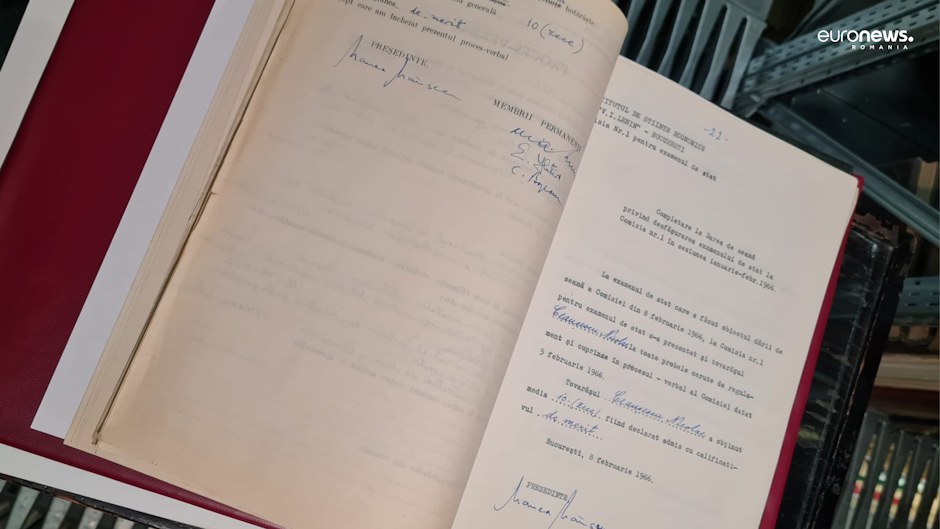 euronews.
ROMANIA
generală
hotărăște
de merit 10 (zece)
care am încheiat prezentul proces-verbal
PREȘEDINTE,
MEMBRII PERMANENȚI
-21-
TITUTUL DE ȘTIINȚE ECONOMICE
"V.I.LENIN" - BUCUREȘTI
isia Nr.1 pentru examenul de stat
Completare la Darea de seamă
privind desfășurarea examenului de stat la
Comisia nr.1 în sesiunea ianuarie-febr.1966.
La examenul de stat care a făcut obiectul dării de
seamă a Comisiei din 8 februarie 1966, la Comisia nr.1
pentru examenul de stat s-a prezentat și tovarășul
Ceaușescu Nicolae la toate probele cerute de regula-
ment și cuprinse în procesul - verbal al Comisiei datat
5 februarie 1966.
Tovarășul Ceaușescu Nicolae a obținut
media 10 (zece) fiind declarat admis cu calificati-
vul de merit
București, 8 februarie 1966.
PREȘEDINTE